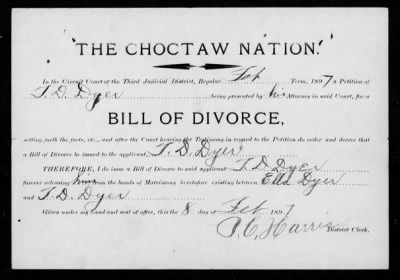 THE CHOCTAW NATION.
In the Circuit Court of the Third Judicial District, Regular Feb Term, 1897, a Petition of
T. D. Dyer being presented by his Attorney in said Court, for a
BILL OF DIVORCE,
setting forth the facts, etc., and after the Court hearing the Testimony in regard to the Petition do order and decree that
a Bill of Divorce be issued to the applicant, T. D. Dyer
THEREFORE, I do issue a Bill of Divorce to said applicant, T. D. Dyer
forever releasing him from the bonds of Matrimony heretofore existing between Ella Dyer
and T. D. Dyer
Given under my hand and seal of office, this the 8 day of Feb 1897
District Clerk.
Harris